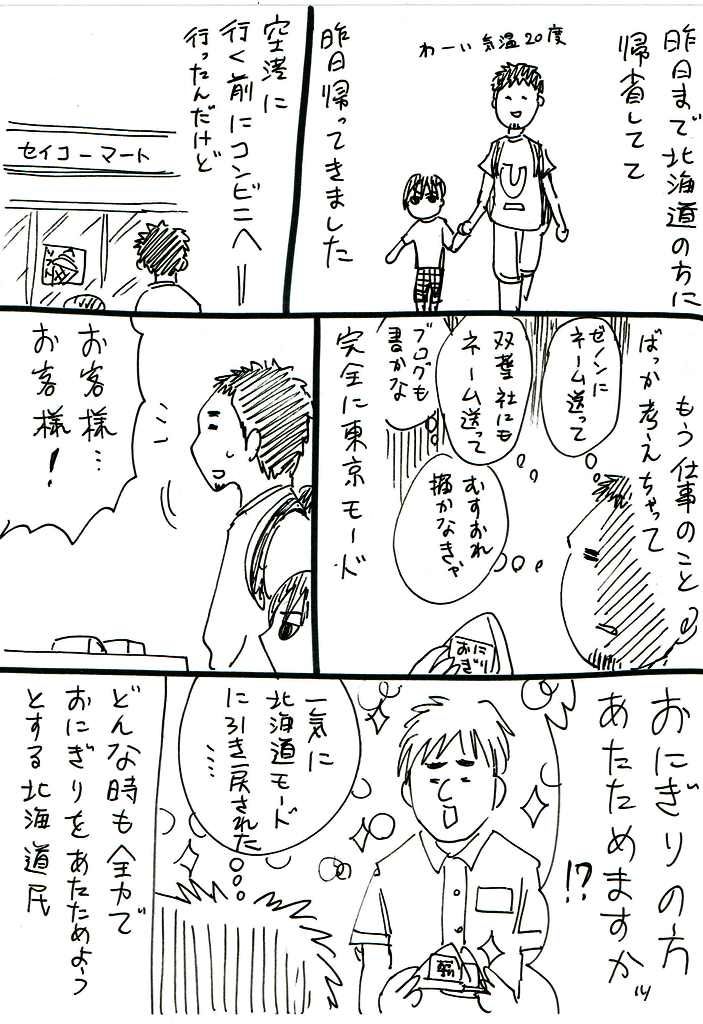 昨日まで北海道の方に
帰省してて
わーい気温20度
昨日帰ってきました
空港に
行く前にコンビニへ
行ったんだけど
セイコーマート
もう仕事のこと
ばっか考えちゃって
ゼノンに
ネーム送って
双葉社にも
ネーム送って
ブログも
書かな
むすおれ
描かなきゃ
完全に東京モード
おにぎり
お客様…
お客様!
おにぎりの方
あたためますかッ
!?
一気に
北海道モード
に引き戻された
…
どんな時も全力で
おにぎりをあたためようと
する北海道民